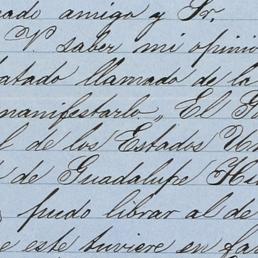 ado amigo y Sr.
V. saber mi opinio
atado llamado de la
manifestarlo, El Go
l de los Estados Un
de Guadalupe Hid
pudo librar al de
e este tuviere en fa